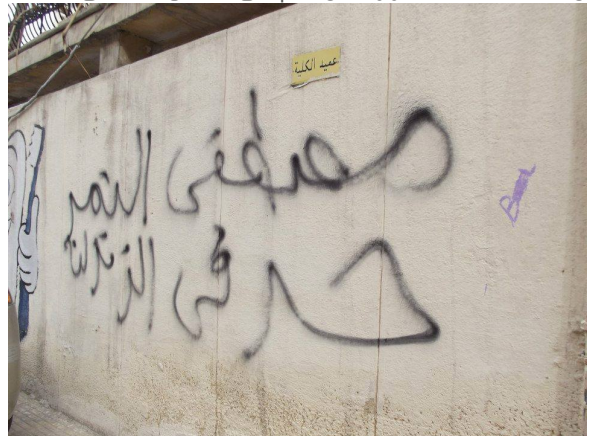 عميد الكلية
مصطفى النمر
حر فى الزنزانة